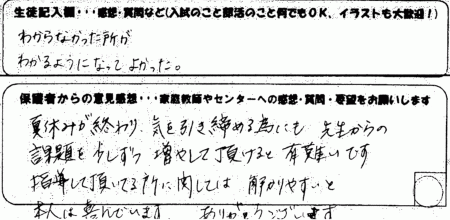 生徒記入欄・・・感想・質問など(入試のこと部活のこと何でもOK、イラストも大歓迎!)
わからなかった所が
わかるようになってよかった。
保護者からの意見感想・・・家庭教師やセンターへの感想・質問・要望をお願いします
夏休みが終わり、気を引き締める為にも 先生からの
課題を少しずつ 増やして頂けると 有難いです
指導して頂いてる所に関しては 解かりやすいと
本人は喜んでいます。 ありがとうございます